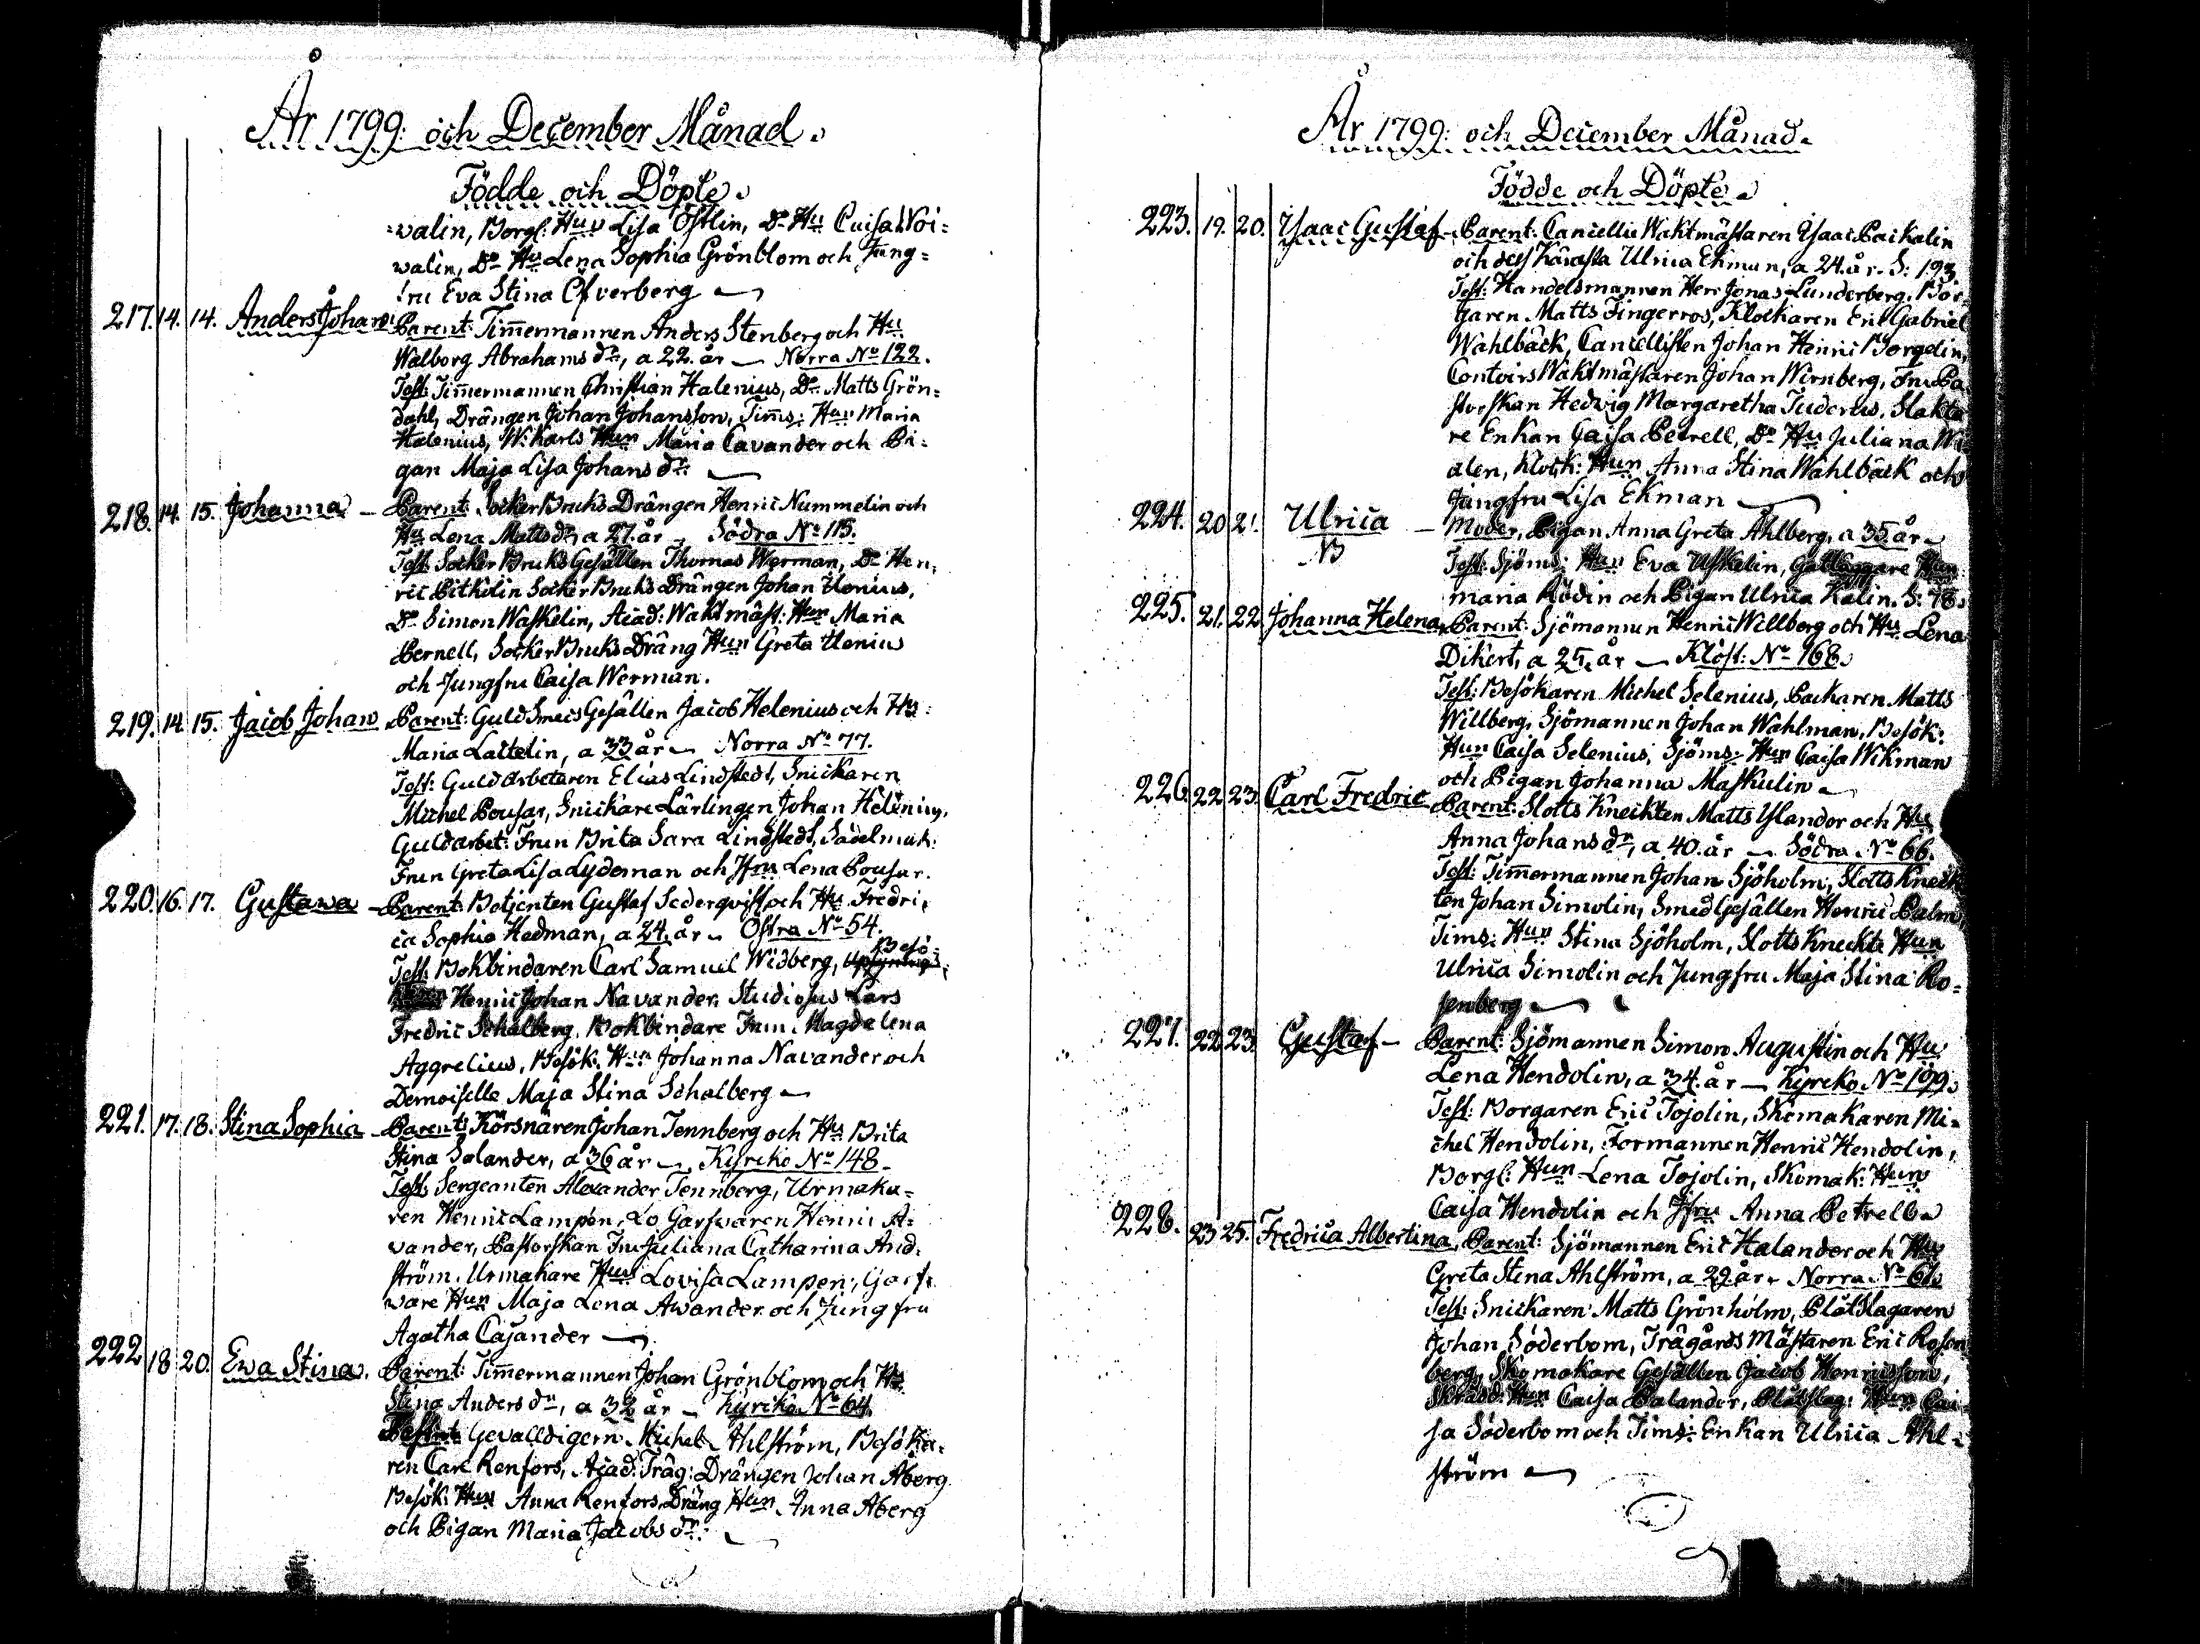 År 1799: och December Månad.
Födde och Döpte.
walin, Borgl: Hun Lisa Östlin, Do Hu Caisa Noi=
walin, Do Hu Lena Sophia Grönblom och Jung=
fru Eva Stina Öfverberg
217. 14. 14. Anders Johan Parent: Timmermannen Anders Stenberg och Hu
Walborg Abrahams dr, a 22. år — Norra No 122.
Test: Timmermannen Christian Halenius, Do Matts Grön=
dahl, Drängen Johan Johansson, Timms: Hun Maria
Halenius, W: Karls Hun Maria Cavander och Pi=
gan Maja Lisa Johans dr:
218. 14. 15. Johanna — Parent: Socker Bruks Drängen Henric Nummelin och
Hu Lena Matts dr, a 27. år — Södra No 115.
Test: Socker Bruks Gesällen Thomas Werman, Do Hen=
ric Pithelin Socker Bruks Drängen Johan Uenius,
Do Simon Waskelin, Acad: Waktmäst: Hun Maria
Pernell, Socker Bruks Dräng Hun Greta Uenius
och Jungfru Caisa Werman.
219. 14. 15. Jacob Johan Parent: Guld Smeds Gesällen Jacob Helenius och Hu:
Maria Lattelin, a 33 år — Norra No 77.
Test: Guld Arbetaren Elias Lindstedt, Snickaren
Michel Pousar, Snickare Lärlingen Johan Helenius,
Guldarbet: Frun Brita Sara Lindstedt, Sadelmak:
Frun Greta Lisa Lydeman och Jfru Lena Pousar.
220. 16. 17. Gustava — Parent: Betjenten Gustaf Sederqvist och Hu Fredri=
ca Sophia Hedman, a 24. år — Östra No 54.
Test: Bokbindaren Carl Samuel Widberg, Besö=
Henric Johan Navander, Studiosus Lars
Fredric Schalberg, Bokbindare Frun Magdalena
Aggrelius, Besök: Hun Johanna Navander och
Demoiselle Maja Stina Schalberg —
221. 17. 18. Stina Sophia — Parent: Körsnären Johan Tennberg och Hu Brita
Stina Salander, a 36 år — Kyrko No 148.
Test: Sergeanten Alexander Tennberg, Urmaka=
ren Henric Lampen, Lo Garfvaren Henric A=
vander, Pastorskan Fru Juliana Catharina And=
ström, Urmakare Hun Lovisa Lampen, Garf=
vare Hun Maja Lena Avander och Jungfru
Agatha Cajander —
222 18 20. Ewa Stina. Parent: Timmermannen Johan Grönblom och Hu
Stina Anders dr, a 32 år — Kyrko No 64.
Gevalldigern Michel Ahlström, Besöka=
ren Carl Renfors, Acad: Träg: Drängen Johan Åberg
Besök: Hun Anna Renfors, Dräng Hun Anna Åberg
och Pigan Maria Jacobs dr:
År 1799: och December Månad.
Födde och Döpte.
223. 19. 20. Isaac Gustaf Parent: Cancellie Waktmästaren Isaac Packalin
och dess Kärasta Ulrica Ekman, a 24. år. S: 193
Test: Handelsmannen Herr Jonas Lunderberg, Bor=
garen Matts Fingerros, Klockaren Eric Gabriel
Wahlbäck, Cancellisten Johan Henric Borgelin,
Contoirs Waktmästaren Johan Wirnberg, Fru Pa
storskan Hedvig Margaretha Juderus, Slakta
re Enkan Caisa Petrell, Do Hu Juliana Wi
alen, Klock: Hun Anna Stina Wahlbäck och
Jungfru Lisa Ekman
224. 20 21. Ulrica — Moder, Pigan Anna Greta Ahlberg, a 35 år —
NB Test: Sjöms: Hun Eva Uskelin, Hun
maria Rödin och Pigan Ulrica Kalin. S: 78.
225. 21. 22 Johanna Helena, Parent: Sjömannen Henric Willberg och Hu Lena
Dikert, a 25. år — Klöst: No 168.
Test: Besökaren Michel Selenius, Packaren Matts
Willberg, Sjömannen Johan Wahlman, Besök:
Hun Caisa Selenius, Sjöms: Hun Caisa Wikman
och Pigan Johanna Maskulin —
226. 22 23. Carl Fredric Parent: Slotts Knekten Matts Islander och Hu
Anna Johans dr, a 40. år — Södra No 66.
Test: Timmermannen Johan Sjöholm, Slotts Kneck
ten Johan Simolin, Smed Gesällen Henric Palm,
Tims: Hun Stina Sjöholm, Slotts Kneckte Hun
Ulrica Simolin och Jungfru Maja Stina Ro=
senberg —
227. 22 23. Gustaf — Parent: Sjömannen Simon Augustin och Hu
Lena Hendolin, a 34. år — Kyrko No 199.
Test: Borgaren Eric Tojolin, Skomakaren Mi=
chel Hendolin, Formannen Henric Hendolin,
Borgl: Hun Lena Tojolin, Skomak: Hun
Caisa Hendolin och Jfru Anna Petrell
228. 23 25. Fredrica Albertina, Parent: Sjömannen Eric Halander och Hu
Greta Stina Ahlström, a 29 år, Norra No 61.
Test: Snickaren Matts Grönholm, Plåtslagaren
Johan Söderbom, Trägårds Mästaren Eric Rosen
berg, Skomakare Gesällen Jacob Henricsson,
Skrädd: Hun Caisa Palander, Plåtslag: Hun Cai=
sa Söderbom och Tims: Enkan Ulrica Ahl=
ström —